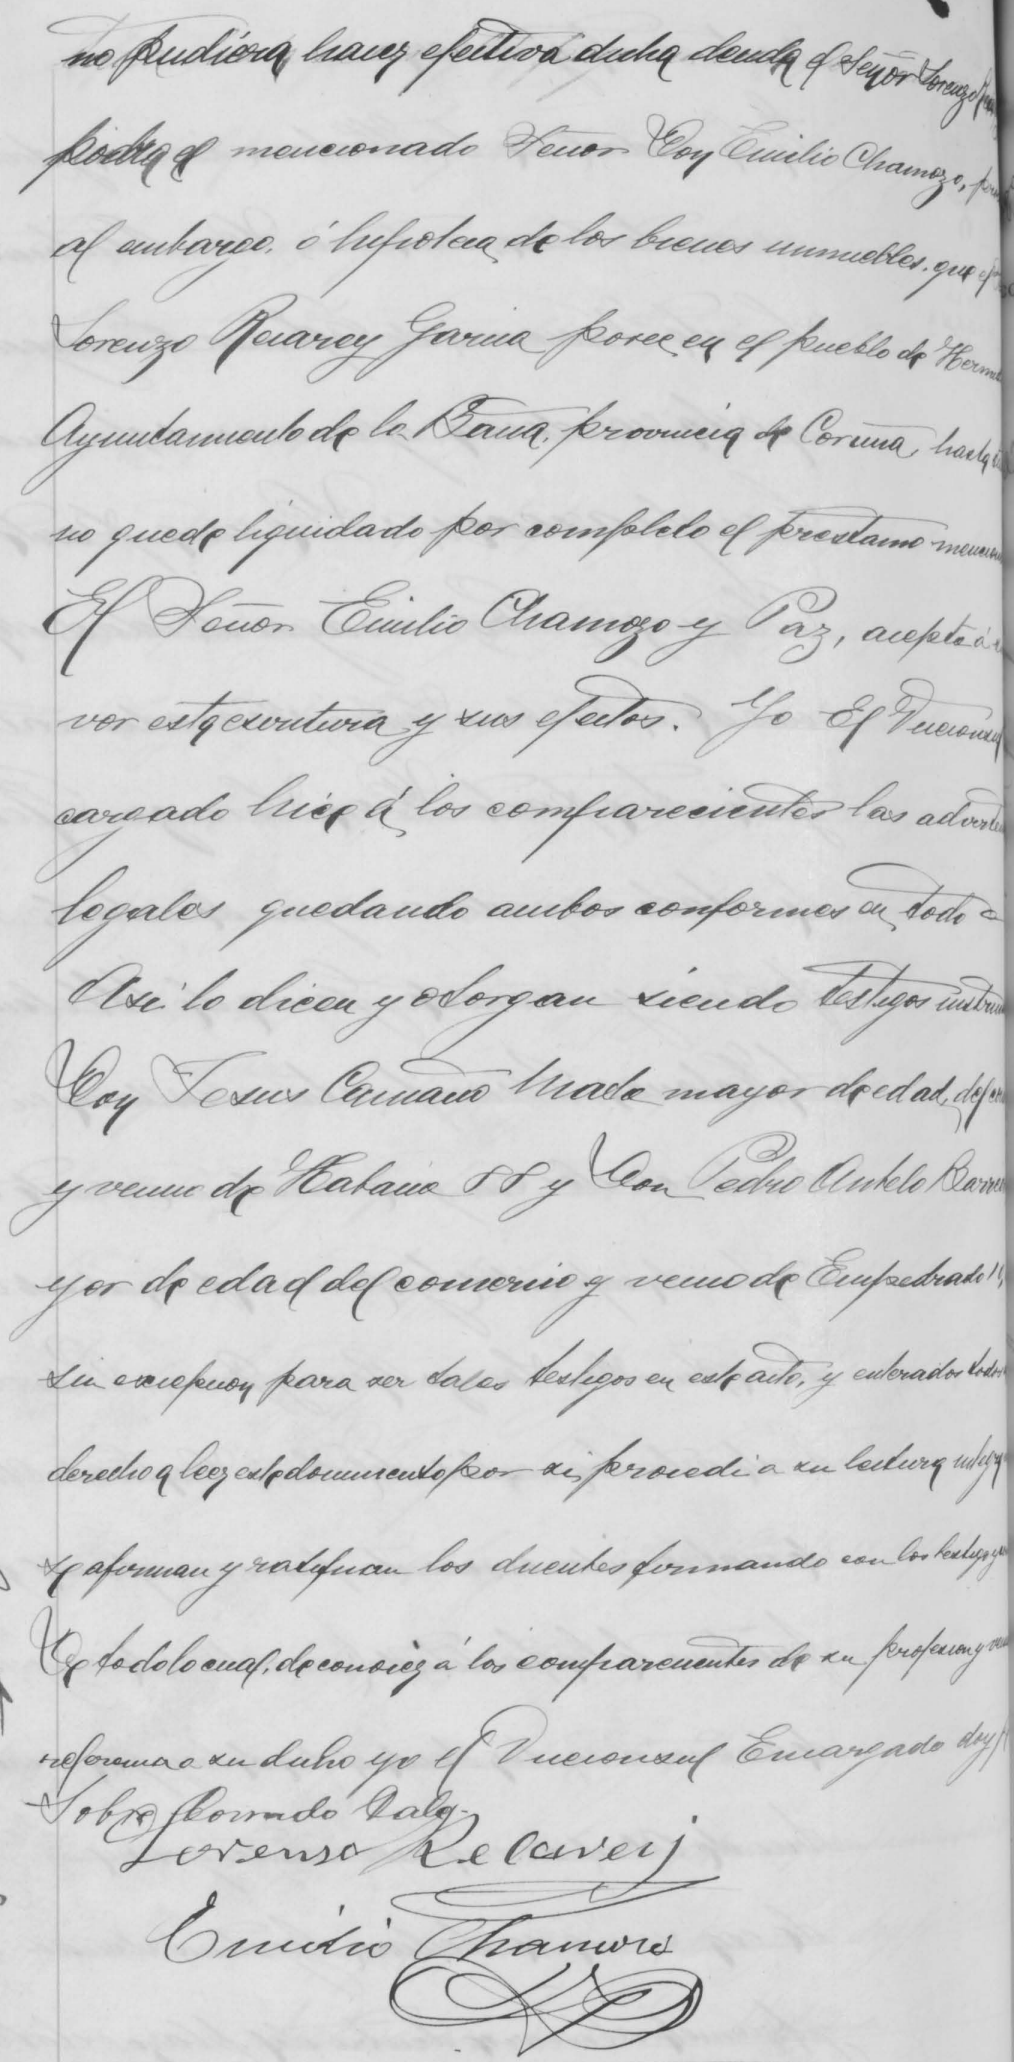 no pudiera hacer efectiva dicha deuda el Señor Lorenzo
podra el mencionado Señor Don Emilio Chamozo,
al embargo. ó hipoteca de los bienes inmuebles. que
Lorenzo Recarey Garcia posee en el pueblo de
Ayuntamiento de la Baña, provincia de Coruña, hasta
no quede liquidado por completo el prestamo
El Señor Emilio Chamozo y Paz, acepta á
vor esta escritura y sus efectos. Yo El Viceconsul
cargado hice á los comparecientes las
legales quedando ambos conformes en todo
Asi lo dicen y otorgan siendo testigos
Don Jesus Camaño mayor de edad, del
y vecino de Habana 88 y Don Pedro Antelo
yor de edad del comercio y vecino de Empedrado
sin excepcion para ser tales testigos en este acto, y enterados todos
derecho a leer este documento por si, procedi a su lectura
se afirman y ratifican los firmando con los testigos
De todo lo cual, de conocer á los comparecientes de su profesion y
a su dicho yo el Viceconsul Encargado doy
Sobre Borrado Vale.
Lorenso Recarey
Emilio Chamoso